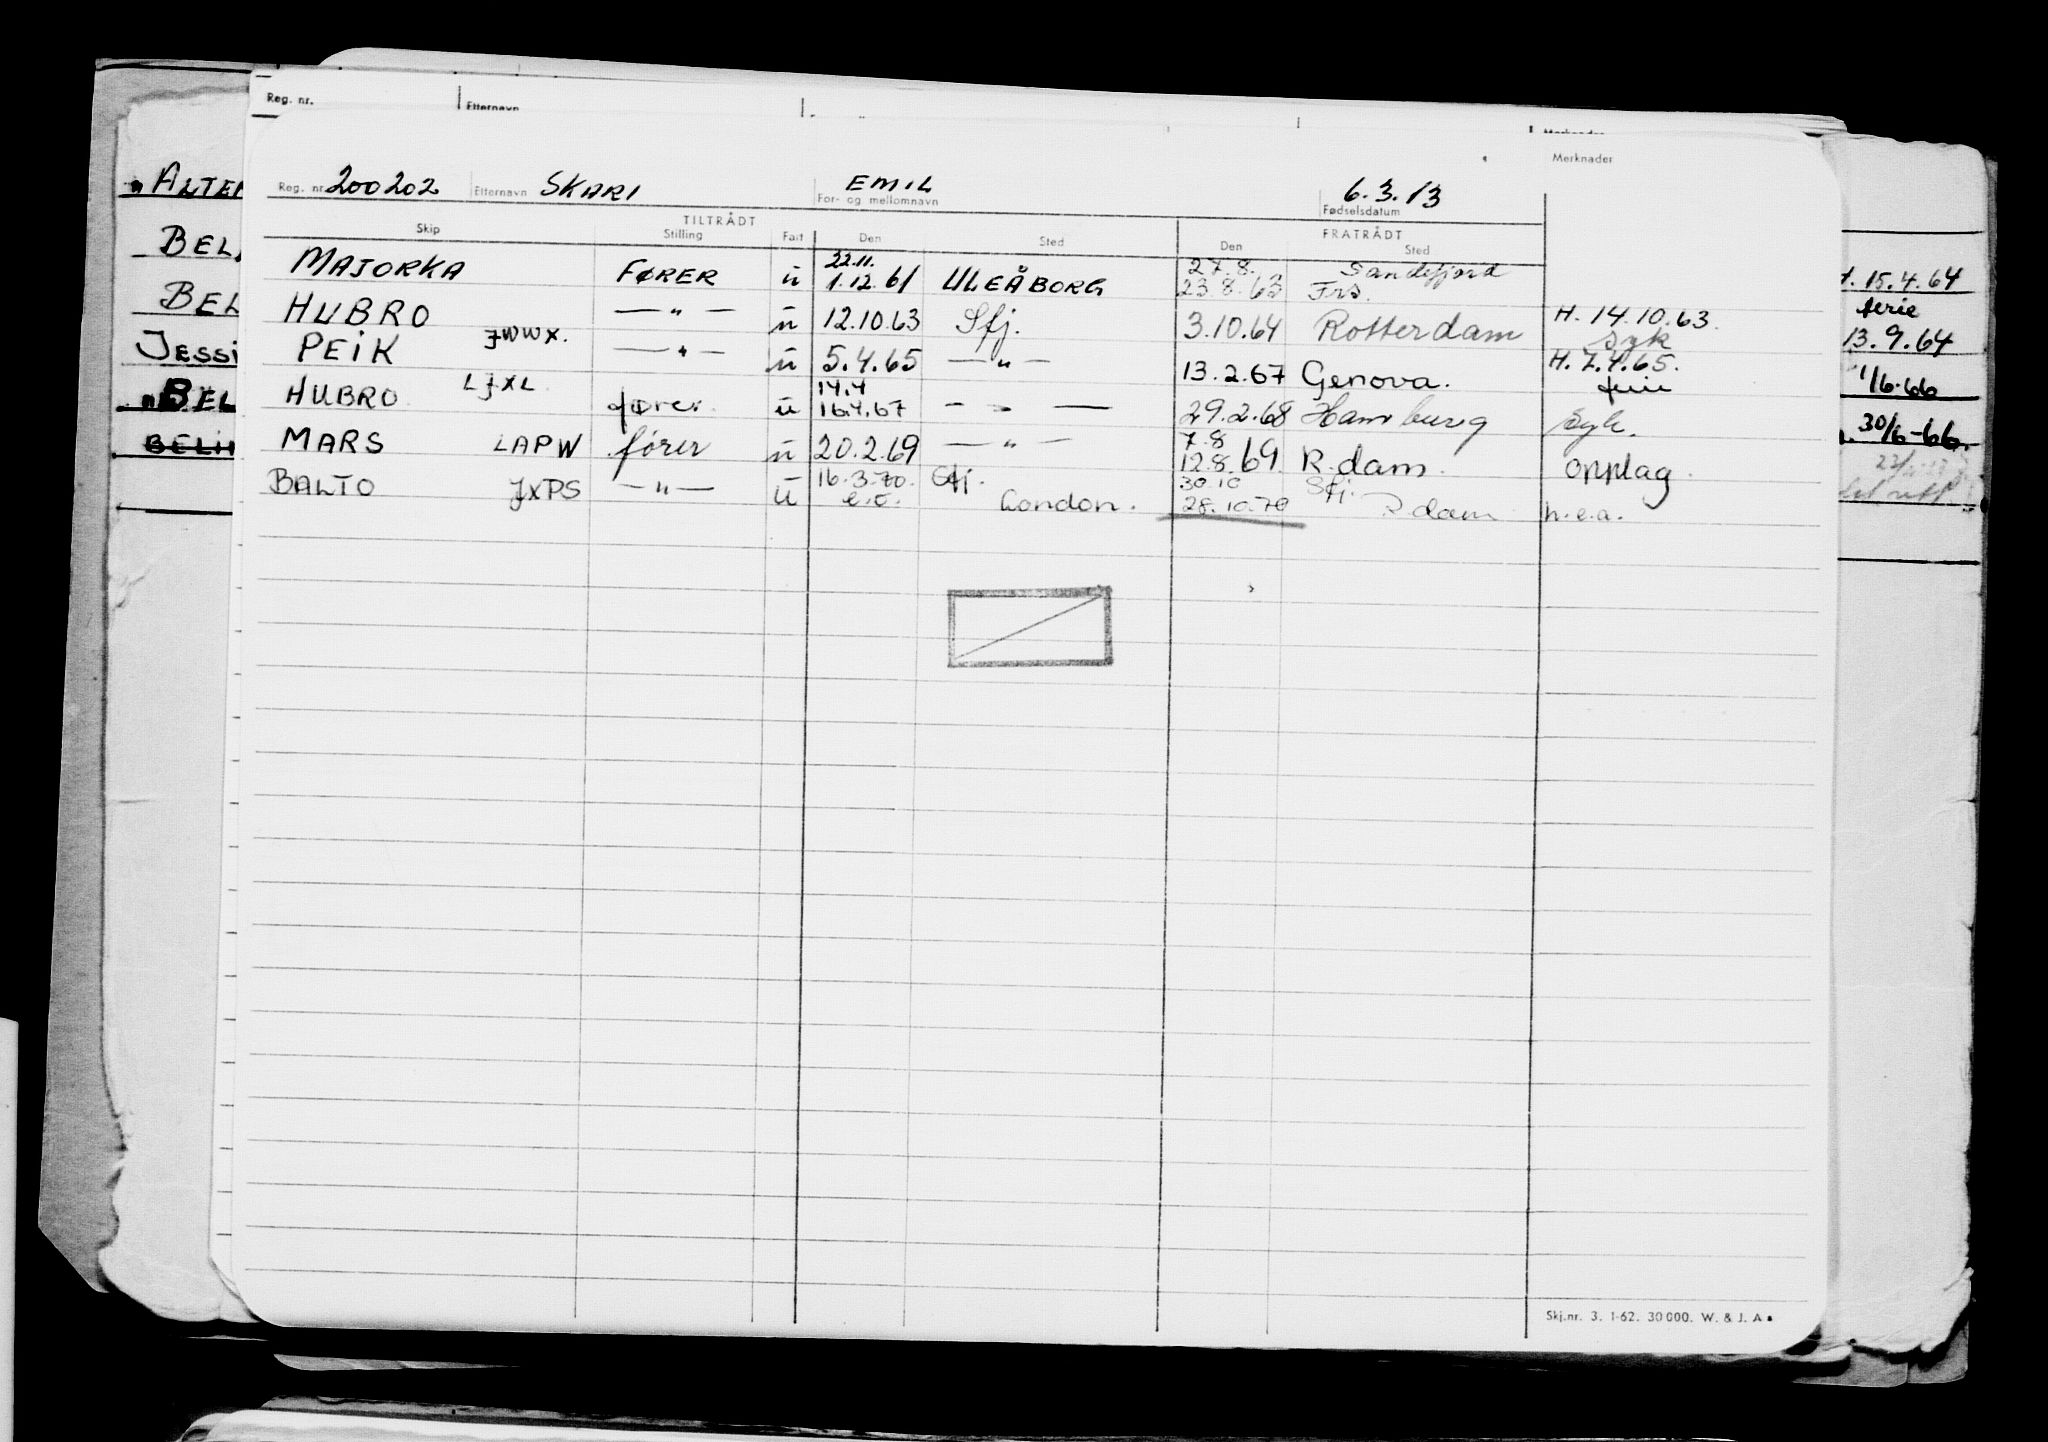 Reg. nr. Etternavn
Merknader
Reg. nr. 200202 Etternavn SKARI EMIL For- og mellomnavn 6.3.13 Fødselsdatum
TILTRÅDT FRATRÅDT
Skip Stilling Fart Den Sted Den Sted
22.11. 27.8. Sandefjord
MAJORKA FØRER u 1.12.61 ULEÅBORG 23.8.63 Frs.
HUBRO —"— u 12.10.63 Sfj. 3.10.64 Rotterdam H. 14.10.63. syk
PEIK JWWX. —"— u 5.4.65 —"— 13.2.67 Genova. H. 7.4.65. ferie
14.4
HUBRO LJXL fører u 16.4.67 —"— 29.2.68 Hamburg Syk.
7.8
MARS LAPW fører u 20.2.69 —"— 12.8.69 R.dam. opplag.
16.3.70. Sfj. 30.10 Sfj.
BALTO JXPS —"— u e.o. London. 28.10.70 R dam h.e.a.
Skj.nr. 3. 1-62. 30 000. W. & J. A
ALTE
BEL
BEL
JESSI
BEL
BELI
15.4.64
ferie
13.9.64
1/6-66
30/6-66.